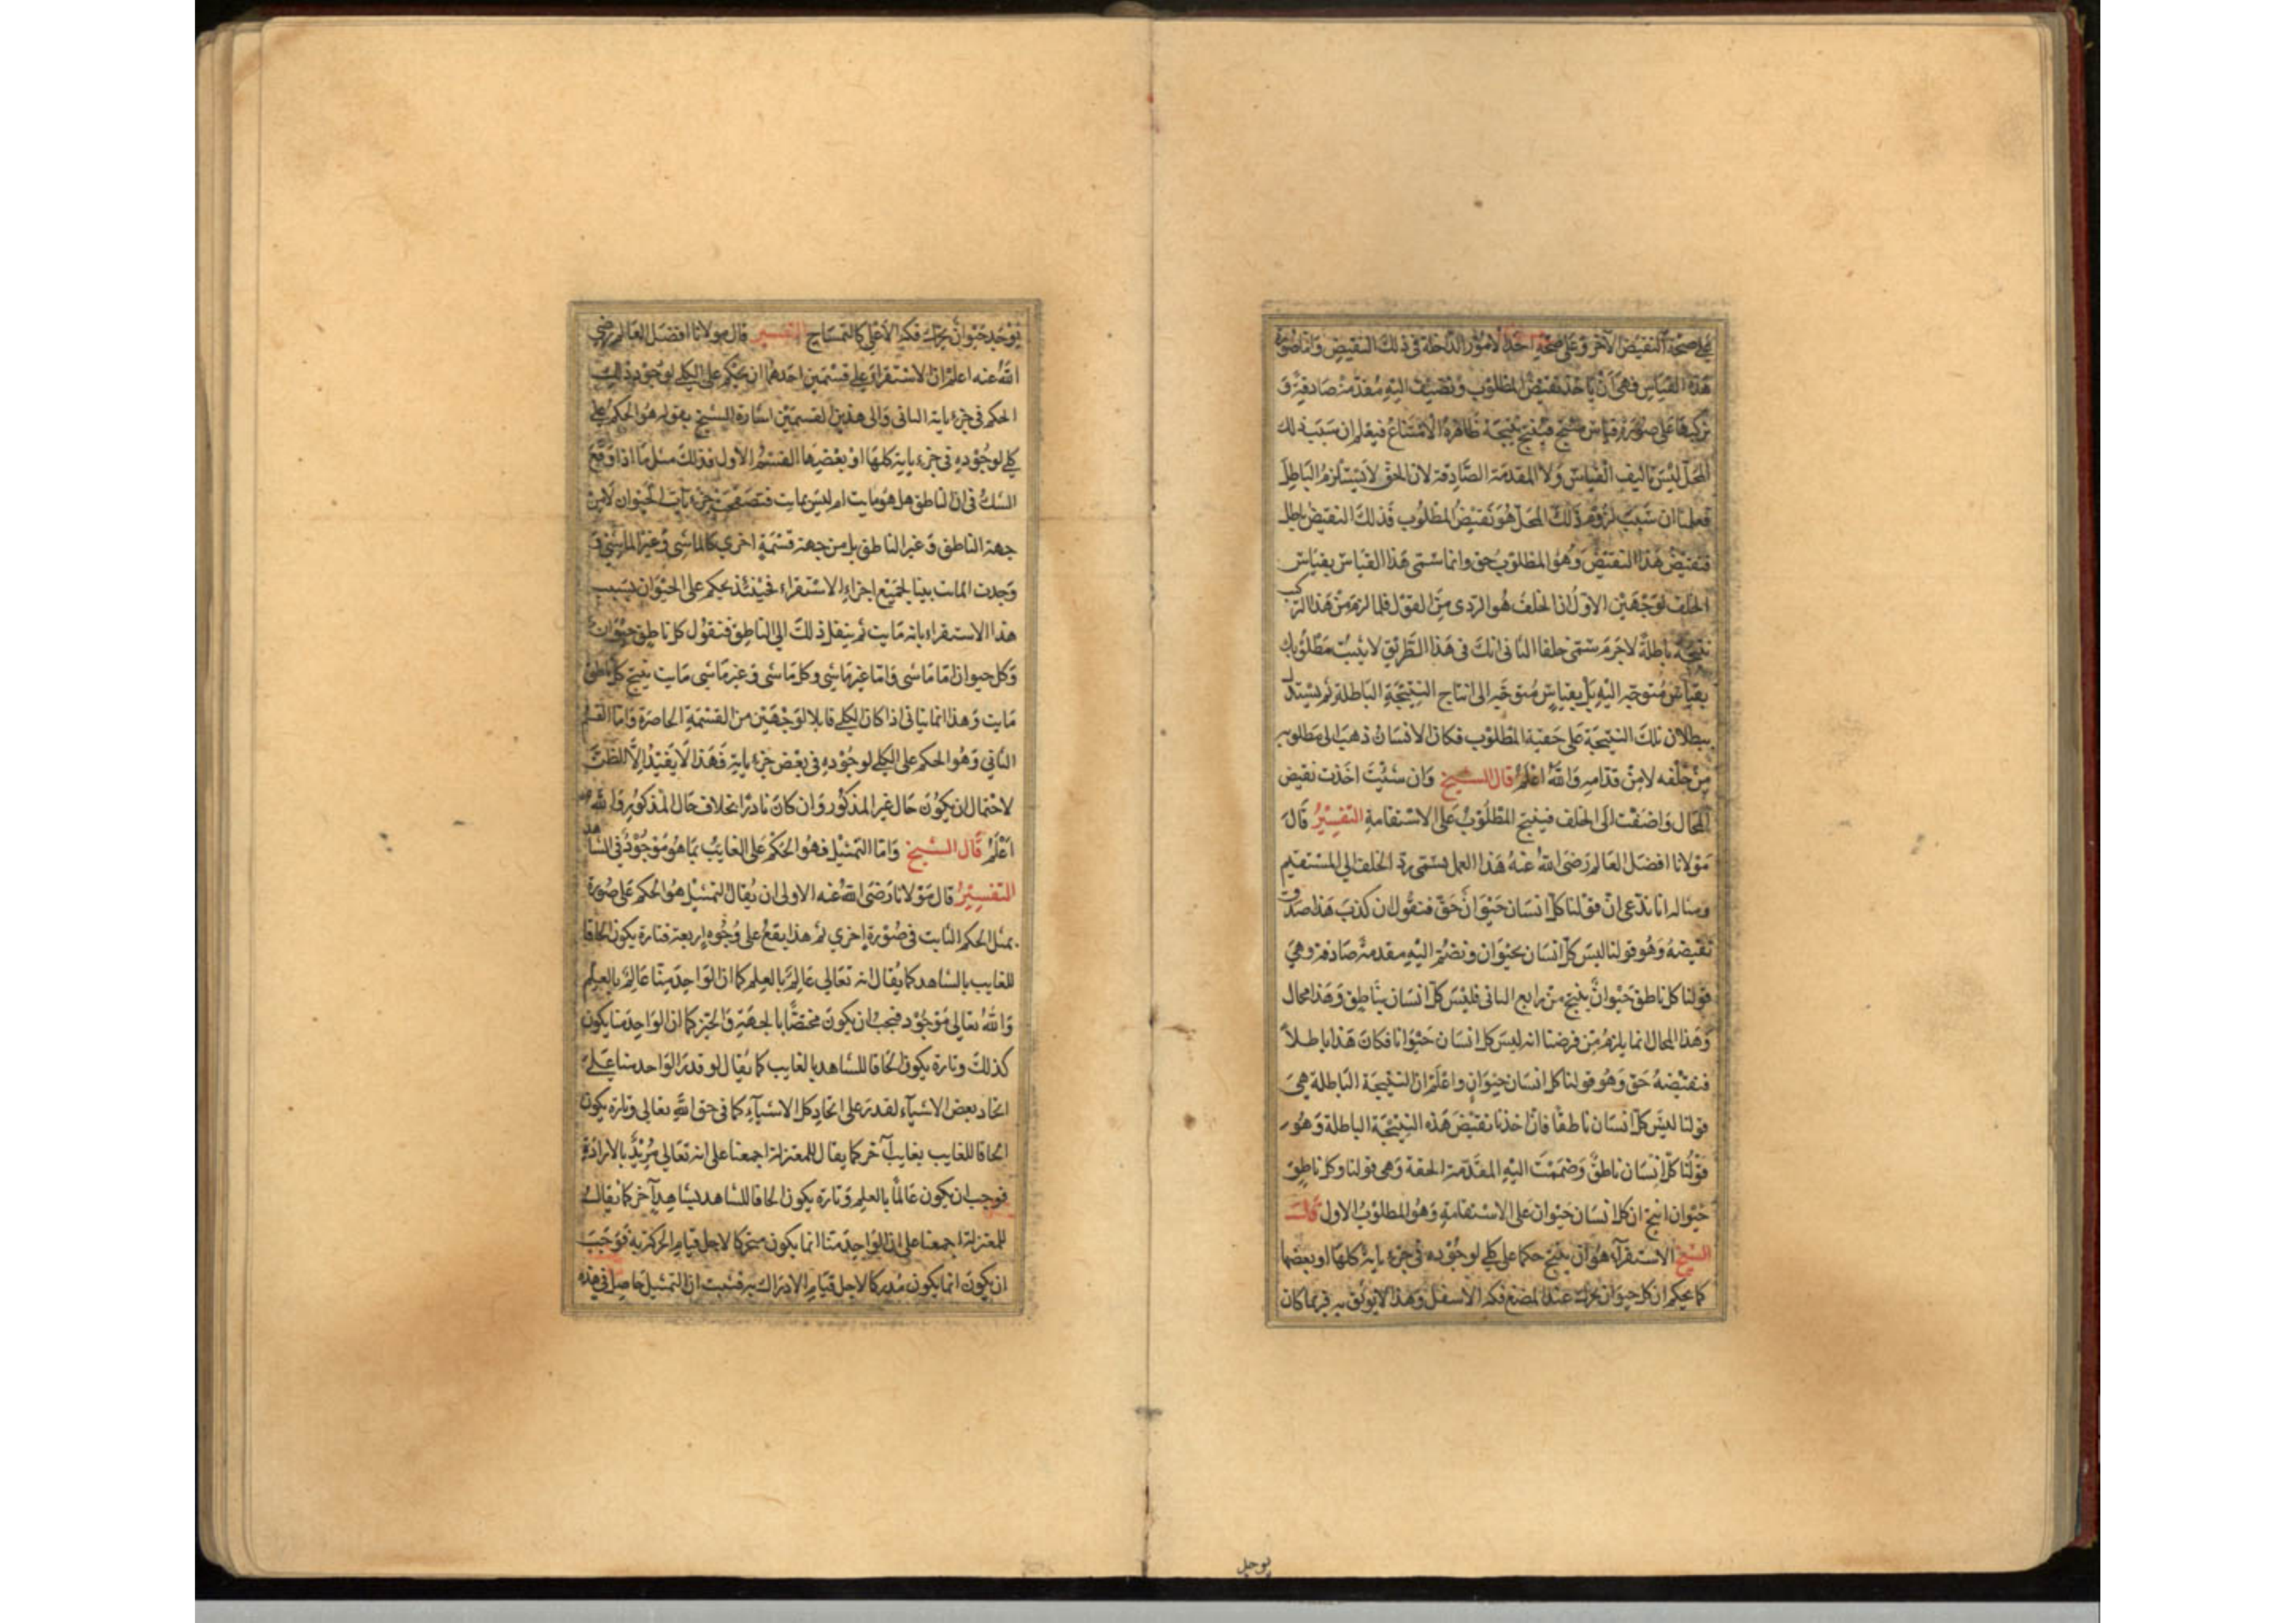 على صحة النقيض الآخر وعلى صحة احد الامور الداخلة فى ذلك النقيض واما صورة
هذه القياس فهى ان ياخذ نقيض المطلوب ونضيف اليه مقدمة صادقة و
تركيبها على صورة قياس منتج فينتج نتيجة ظاهرة الامتناع فيعلم ان سبب ذلك
المحال ليس تاليف القياس ولا المقدمة الصادقة لان الحق لا يستلزم الباطل
فعلمنا ان سبب لزوم ذلك المحال هو نقيض المطلوب فذلك النقيض باطل
فنقيض هذا النقيض وهو المطلوب حق وانما سمى هذا القياس بقياس
الخلف لوجهين الاول ان الخلف هو الردى من القول فلما لزم من هذا التركيب
نتيجة باطلة لا جرم سمى خلفا الثانى انك فى هذا الطريق لا يثبت مطلوبك
بقياس متوجه اليه بل بقياس متوجه الى انتاج النتيجة الباطلة ثم يستدل
ببطلان تلك النتيجة على حقية المطلوب فكان الانسان ذهب الى مطلوبه
من خلفه لا من قدامه والله اعلم قال الشيخ وان شئت اخذت نقيض
المحال واضفت الى الخلف فينتج المطلوب على الاستقامة التفسير قال
مولانا افضل العالم رضى الله عنه هذا العمل يسمى رد الخلف الى المستقيم
ومثاله انا ندعى ان قولنا كل انسان حيوان حق فنقول ان كذب هذا صدق
نقيضه وهو قولنا ليس كل انسان بحيوان ونضم اليه مقدمة صادقة وهى
قولنا كل ناطق حيوان ينتج من رابع الثانى فليس كل انسان بناطق وهذا محال
وهذا المحال انما يلزم من فرضنا انه ليس كل انسان حيوانا فكان هذا باطلا
فنقيضه حق وهو قولنا كل انسان حيوان واعلم ان النتيجة الباطلة هى
قولنا ليس كل انسان ناطقا فان اخذنا نقيض هذه النتيجة الباطلة وهو
قولنا كل انسان ناطق وضممت اليه المقدمة الحقة وهى قولنا وكل ناطق
حيوان انتج ان كل انسان حيوان على الاستقامة وهو المطلوب الاول قال
الشيخ الاستقراء هو ان ينتج حكما على كلى لوجوده فى جزءياته كلها او بعضها
كما يحكم ان كل حيوان يحرك عند المضغ فكه الاسفل وهذا لا يوثق به فربما كان
يوجد
يوجد حيوان يحرك فكه الاعلى كالتمساح التفسير قال مولانا افضل العالم رضى
الله عنه اعلم ان الاستقراء على قسمين احدهما ان يحكم على الكلى لوجود ذلك
الحكم فى جزءياته الثانى والى هذين القسمين اشارة الشيخ بقوله هو الحكم على
كلى لوجوده فى جزءياته كلها او بعضها القسم الاول فذلك مثل ما اذا وقع
الشك فى ان الناطق هل هو مايت ام ليس بمايت فتصفحت جزءيات الحيوان لا من
جهة الناطق وغير الناطق بل من جهة قسمة اخرى كالماشى وغير الماشى و
وجدت المائت بينا لجميع اجزاء الاستقراء فحينئذ يحكم على الحيوان بسبب
هذا الاستقراء بانه مايت ثم ينقل ذلك الى الناطق فنقول كل ناطق حيوان
وكل حيوان اما ماشى واما غير ماشى وكل ماشى وغير ماشى مايت ينتج كل ناطق
مايت وهذا انما يتاتى اذا كان الكلى قابلا لوجهين من القسمة الحاصرة واما القسم
الثانى وهو الحكم على الكلى لوجوده فى بعض جزءياته فهذا لا يفيد الا الظن
لاحتمال ان يكون حال غير المذكور وان كان نادرا بخلاف حال المذكور والله
اعلم قال الشيخ واما التمثيل فهو الحكم على الغايب بما هو موجود فى الشاهد
التفسير قال مولانا رضى الله عنه الاولى ان يقال التمثيل هو الحكم على صورة
بمثل الحكم الثابت فى صورة اخرى ثم هذا يقع على وجوه اربعة فتارة يكون الحاقا
للغايب بالشاهد كما يقال انه تعالى عالم بالعلم كما ان الواحد منا عالم بالعلم
والله تعالى موجود فيجب ان يكون مختصا بالجهة والحيز كما ان الواحد منا يكون
كذلك وتارة يكون الحاقا للشاهد بالغايب كما يقال لو قدر الواحد منا على
اتحاد بعض الاشياء لقدر على اتحاد كل الاشياء كما فى حق الله تعالى وتارة يكون
الحاقا للغايب بغايب آخر كما يقال للمعتزلة اجمعنا على انه تعالى مريد بالارادة
فوجب ان يكون عالما بالعلم وتارة يكون الحاقا للشاهد بشاهد آخر كما يقال
للمعتزلة اجمعنا على ان الواحد منا انما يكون متحركا لاجل قيام الحركة به فوجب
ان يكون انما يكون مدركا لاجل قيام الادراك به فثبت ان التمثيل حاصل فى هذه